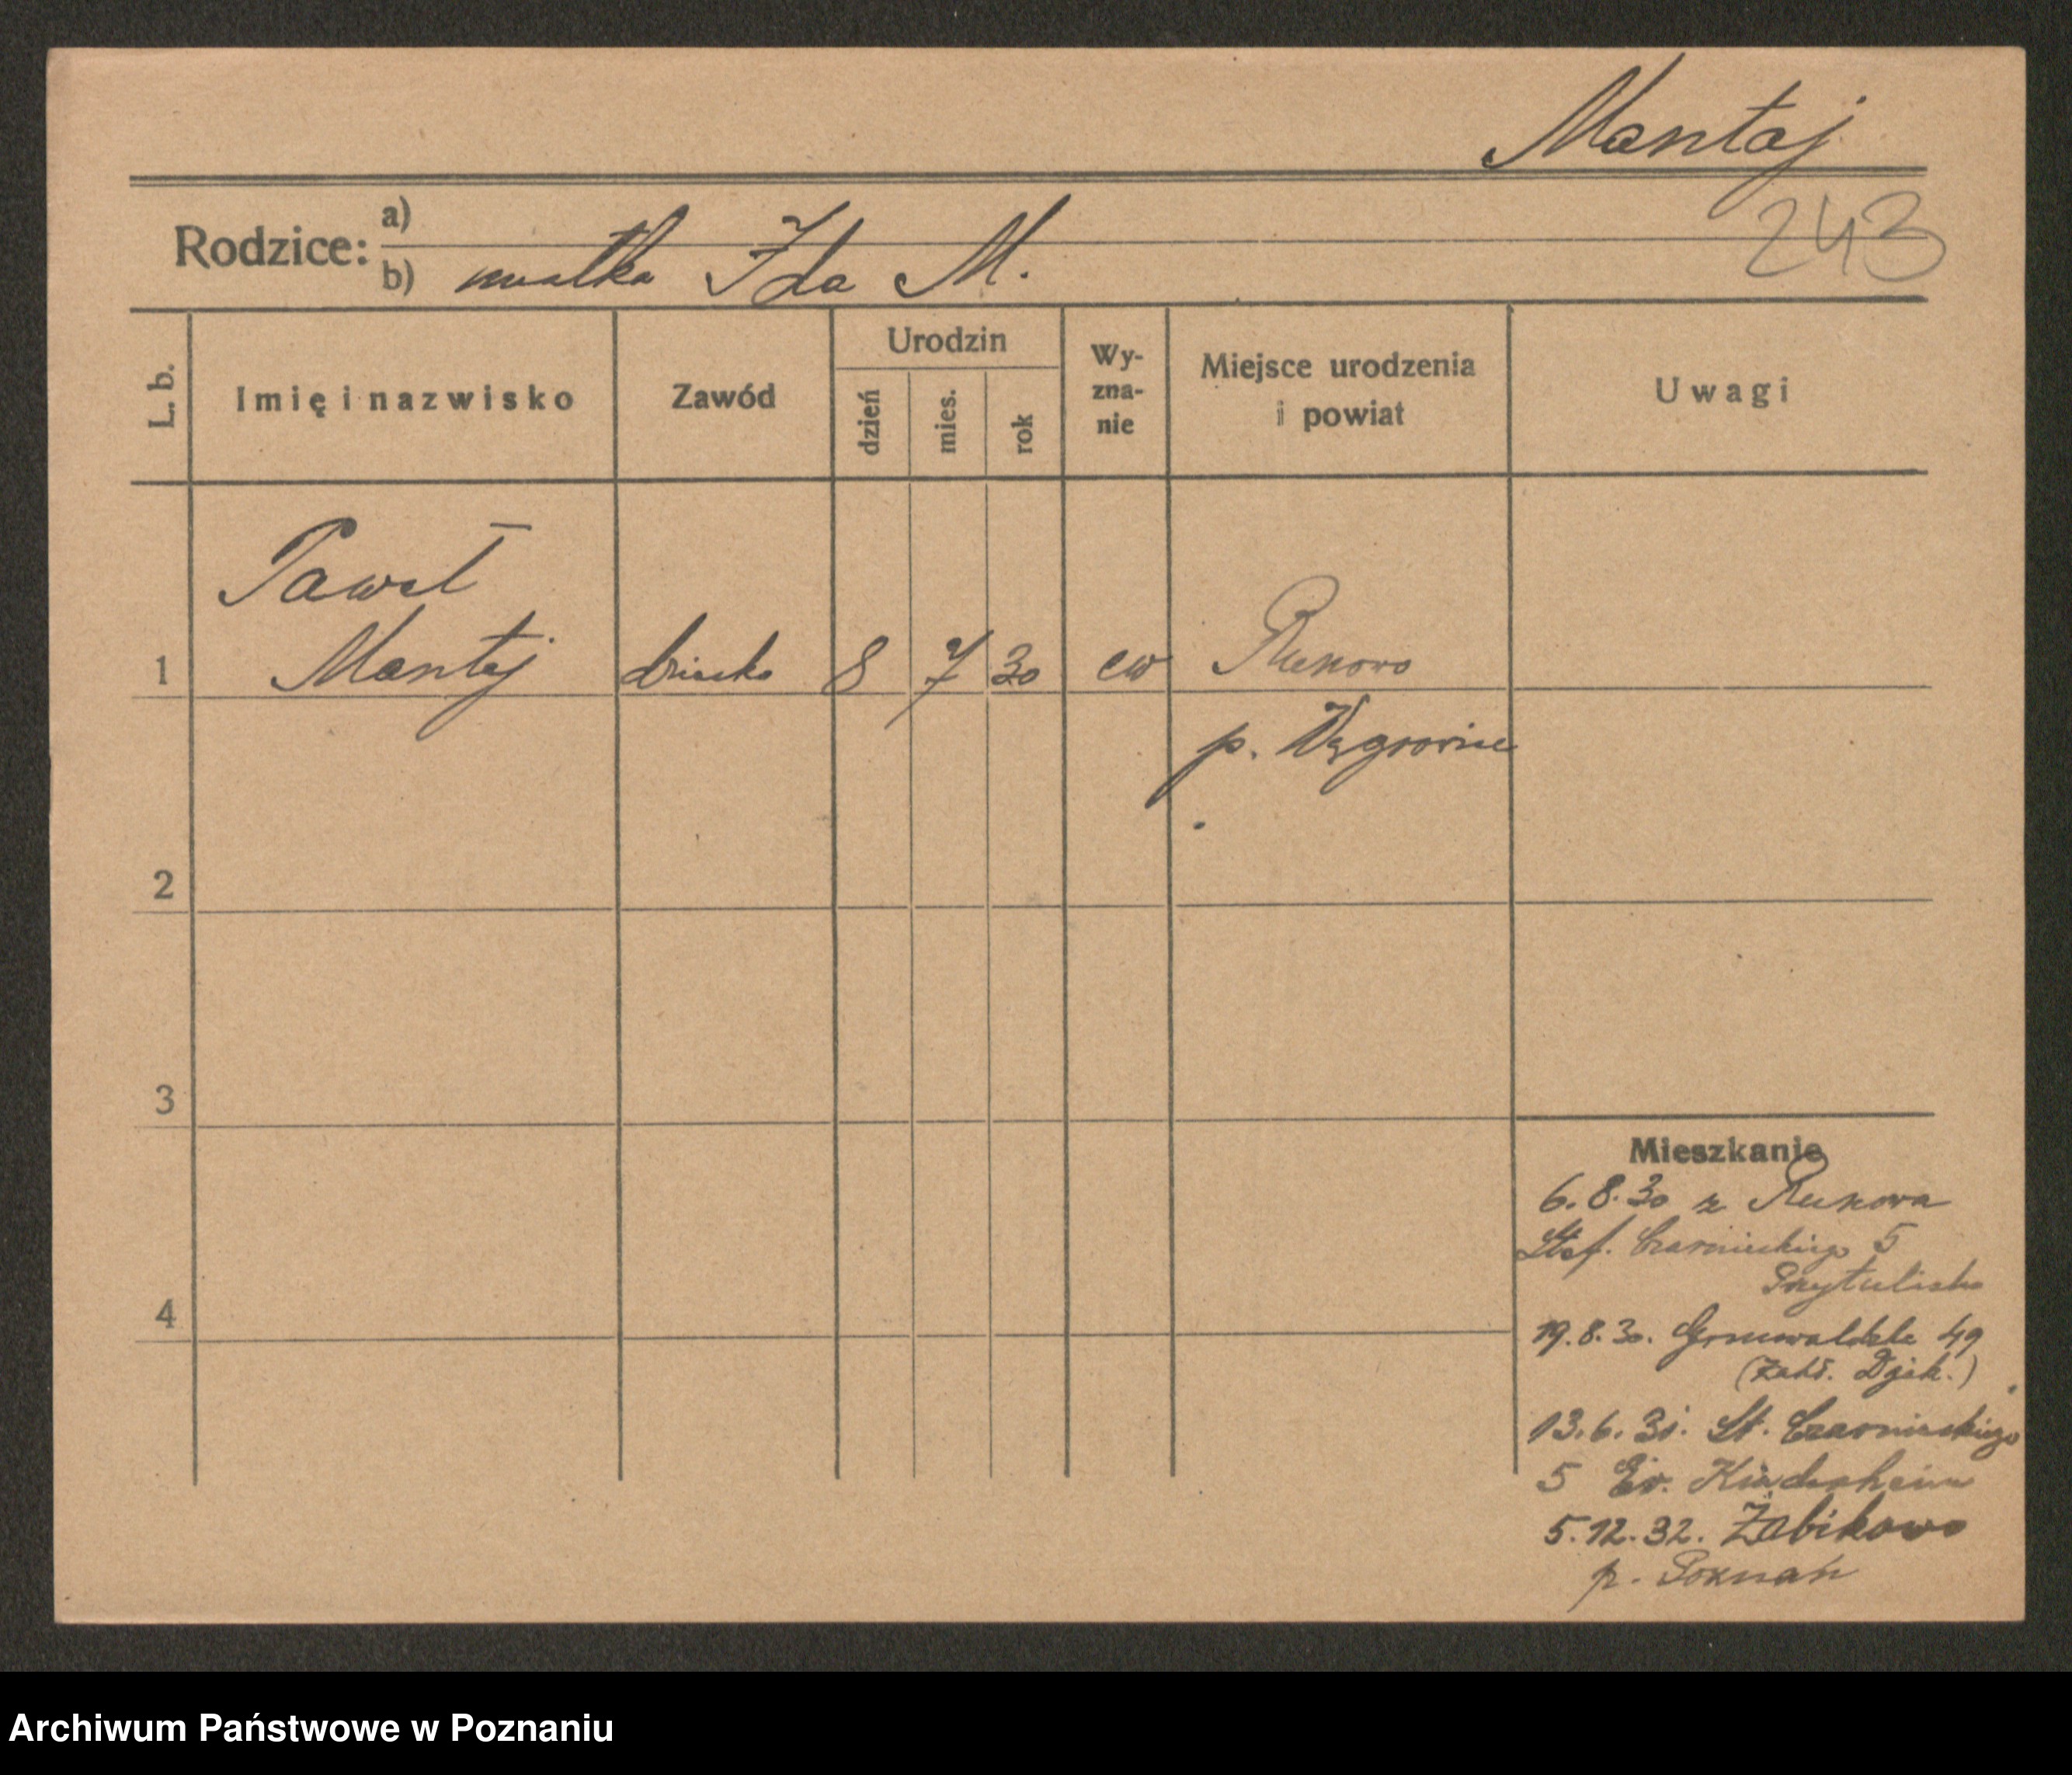 Mantaj
243
Rodzice: a)
b) matka Ida M.
L. b.
Imię i nazwisko
Zawód
Urodzin
dzień
mies.
rok
Wy-
zna-
nie
Miejsce urodzenia
i powiat
Uwagi
Paweł
1 Mantaj dziecko 8 7 30 ew Runowo
p. Wągrowiec
2
3
4
Mieszkanie
6.8.30 z Runowa
Stef. Czarnieckiego 5
Przytulisko
19.8.30. Grunwaldzka 49
(Zakł. Djak.)
13.6.31. St. Czarnieckiego
5 Ev. Kinderheim
5.12.32. Żabikowo
p. Poznań
Archiwum Państwowe w Poznaniu